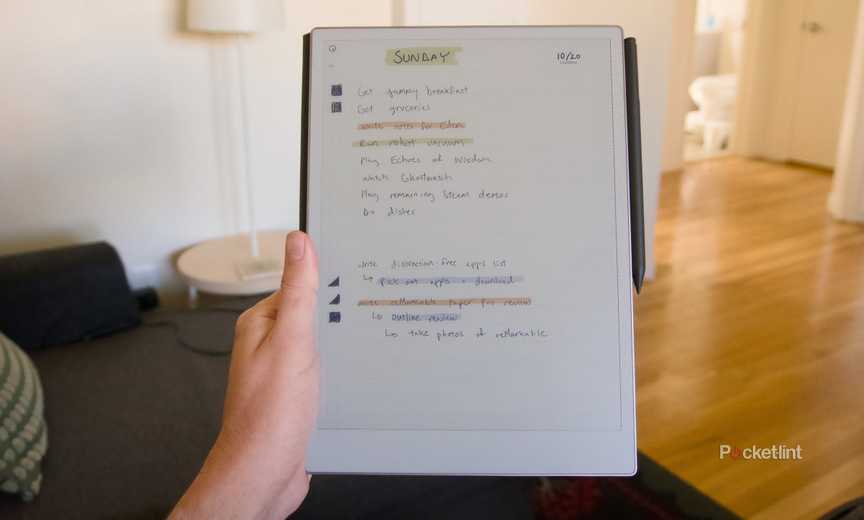 SUNDAY
10/20
Get yummy breakfast
Get groceries
Write notes for
Run robot vacuum
Play Echoes of Wisdom
Watch Ghostwatch
Play remaining Steam demos
Do dishes
Write distraction-free apps list
↳ Pick out apps + download
Write reMarkable Paper Pro review
↳ outline review
↳ take photos of reMarkable
Pocketlint